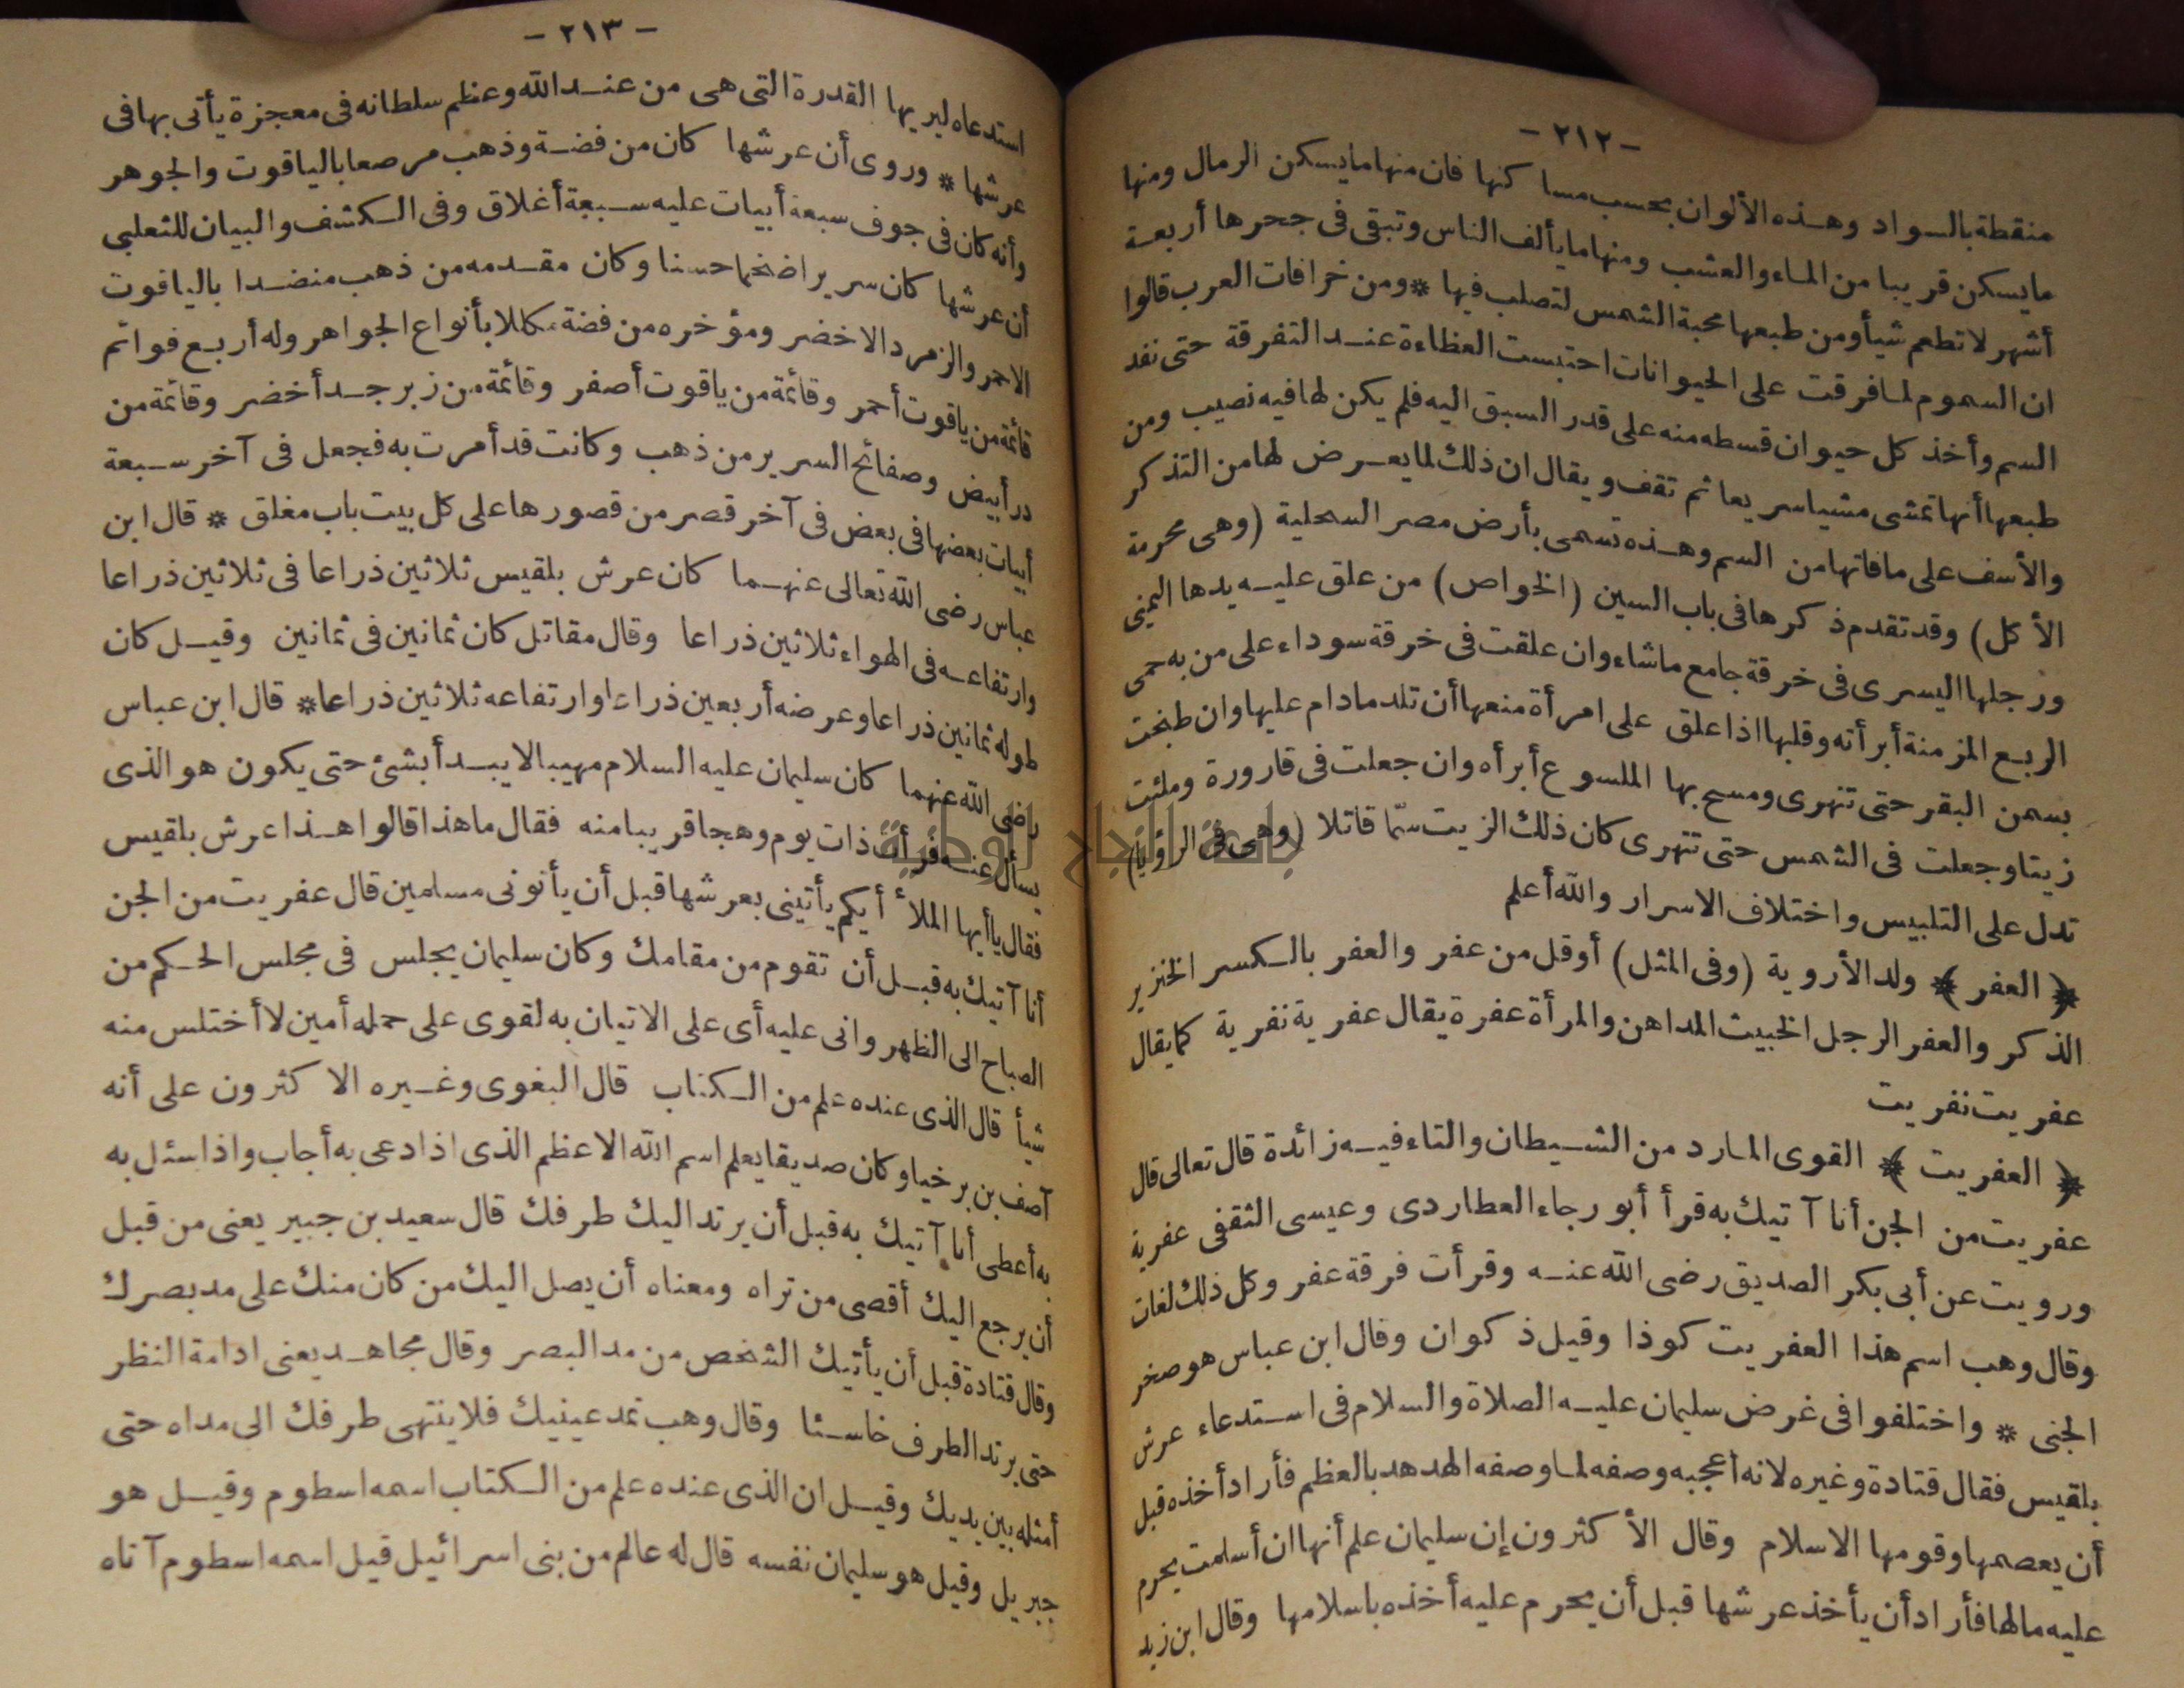 - ٢١٢ -
منقطة بالسواد وهذه الألوان بحسب مساكنها فان منها ما يسكن الرمال ومنها
ما يسكن قريبا من الماء والعشب ومنها ما يألف الناس وتبقى فى جحرها أربعة
أشهر لا تطعم شيأ ومن طبعها محبة الشمس لتصلب فيها * ومن خرافات العرب قالوا
ان السموم لما فرقت على الحيوانات احتبست العظاءة عند التفرقة حتى نفد
السم وأخذ كل حيوان قسطه منه على قدر السبق اليه فلم يكن لها فيه نصيب ومن
طبعها أنها تمشى مشيا سريعا ثم تقف ويقال ان ذلك لما يعرض لها من التذكر
والأسف على مافاتها من السم وهذه تسمى بأرض مصر السحلية (وهى محرمة
الأكل) وقد تقدم ذكرها فى باب السين (الخواص) من علق عليه يدها اليمنى
ورجلها اليسرى فى خرقة جامع ماشاء وان علقت فى خرقة سوداء على من به حمى
الربع المزمنة أبرأته وقلبها اذا علق على امرأة منعها أن تلد مادام عليها وان طبخت
بسمن البقر حتى تنهرى ومسح بها الملسوع أبرأه وان جعلت فى قارورة وملئت
زيتا وجعلت فى الشمس حتى تتهرى كان ذلك الزيت سمّا قاتلا (وهى فى الرؤيا)
تدل على التلبيس واختلاف الاسرار والله أعلم
﴿ العفر ﴾ ولد الأروية (وفى المثل) أوقل من عفر والعفر بالكسر الخنزير
الذكر والعفر الرجل الخبيث المداهن والمرأة عفرة يقال عفرية نفرية كما يقال
عفريت نفريت
﴿ العفريت ﴾ القوى المارد من الشيطان والتاء فيه زائدة قال تعالى قال
عفريت من الجن أنا آتيك به قرأ أبو رجاء العطاردى وعيسى الثقفى عفرية
ورويت عن أبى بكر الصديق رضى الله عنه وقرأت فرقة عفر وكل ذلك لغات
وقال وهب اسم هذا العفريت كوذا وقيل ذكوان وقال ابن عباس هو صخر
الجنى * واختلفوا فى غرض سليمان عليه الصلاة والسلام فى استدعاء عرش
بلقيس فقال قتادة وغيره لانه أعجبه وصفه لما وصفه الهدهد بالعظم فأراد أخذه قبل
أن يعصمها وقومها الاسلام وقال الأكثرون إن سليمان علم أنها ان أسلمت يحرم
عليه مالها فأراد أن يأخذ عرشها قبل أن يحرم عليه أخذه باسلامها وقال ابن زيد
- ٢١٣ -
استدعاه ليريها القدرة التى هى من عند الله وعظم سلطانه فى معجزة يأتى بها فى
عرشها * وروى أن عرشها كان من فضة وذهب مرصعا بالياقوت والجوهر
وأنه كان فى جوف سبعة أبيات عليه سبعة أغلاق وفى الكشف والبيان للثعلبى
أن عرشها كان سريرا ضخما حسنا وكان مقدمه من ذهب منضدا بالياقوت
الاحمر والزمرد الاخضر ومؤخره من فضة مكللا بأنواع الجواهر وله أربع قوائم
قائمة من ياقوت أحمر وقائمة من ياقوت أصفر وقائمة من زبرجد أخضر وقائمة من
در أبيض وصفائح السرير من ذهب وكانت قد أمرت به فجعل فى آخر سبعة
أبيات بعضها فى بعض فى آخر قصر من قصورها على كل بيت باب مغلق * قال ابن
عباس رضى الله تعالى عنهما كان عرش بلقيس ثلاثين ذراعا فى ثلاثين ذراعا
وارتفاعه فى الهواء ثلاثين ذراعا وقال مقاتل كان ثمانين فى ثمانين وقيل كان
طوله ثمانين ذراعا وعرضه أربعين ذراعا وارتفاعه ثلاثين ذراعا * قال ابن عباس
رضى الله عنهما كان سليمان عليه السلام مهيبا لا يبدأ بشئ حتى يكون هو الذى
يسأل عنه فرأى ذات يوم وهجا قريبا منه فقال ما هذا قالوا هذا عرش بلقيس
فقال يا أيها الملأ أيكم يأتينى بعرشها قبل أن يأتونى مسلمين قال عفريت من الجن
أنا آتيك به قبل أن تقوم من مقامك وكان سليمان يجلس فى مجلس الحكم من
الصباح الى الظهر وانى عليه أى على الاتيان به لقوى على حمله أمين لا أختلس منه
شيأ قال الذى عنده علم من الكتاب قال البغوى وغيره الاكثرون على أنه
آصف بن برخيا وكان صديقا يعلم اسم الله الاعظم الذى اذا دعى به أجاب واذا سئل به
به أعطى أنا آتيك به قبل أن يرتد اليك طرفك قال سعيد بن جبير يعنى من قبل
أن يرجع اليك أقصى من تراه ومعناه أن يصل اليك من كان منك على مد بصرك
وقال قتادة قبل أن يأتيك الشخص من مد البصر وقال مجاهد يعنى ادامة النظر
حتى يرتد الطرف خاسئا وقال وهب تمد عينيك فلا ينتهى طرفك الى مداه حتى
أمثله بين يديك وقيل ان الذى عنده علم من الكتاب اسمه اسطوم وقيل هو
جبريل وقيل هو سليمان نفسه قال له عالم من بنى اسرائيل قيل اسمه اسطوم آتاه
جامعة النجاح الوطنية